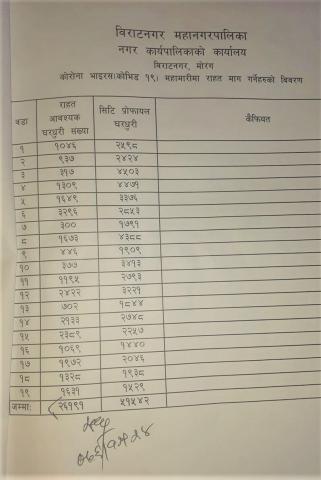 विराटनगर महानगरपालिका
नगर कार्यपालिकाको कार्यालय
विराटनगर, मोरंग
कोरोना भाइरस(कोभिड १९) महामारीमा राहत माग गर्नेहरुको विवरण
वडा राहत आवश्यक घरधुरी संख्या सिटि प्रोफायल घरधुरी कैफियत
१ १०४६ २५९८
२ ९३७ २४२४
३ ३१७ ४५०३
४ १३०९ ४४७१
५ १६४९ ३३७६
६ ३२९६ २८५३
७ ३०० १७९१
८ १६७३ ४३८८
९ ४४६ १९०९
१० ३७७ ३४१३
११ ११९५ २७९३
१२ २४२२ ३२२१
१३ ७०२ १८४४
१४ २१३३ २७४८
१५ २३८९ २२५७
१६ १०६९ १४४०
१७ १९७२ २०४६
१८ १३२८ १९३८
१९ १६३१ १५२९
जम्मा: २६१९१ ५१५४२